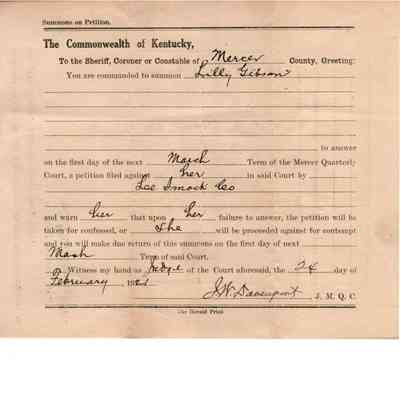 Summons on Petition.
The Commonwealth of Kentucky,
To the Sheriff, Coroner or Constable of Mercer County, Greeting:
You are commanded to summon Lilly Gibson
to answer
on the first day of the next March Term of the Mercer Quarterly
Court, a petition filed against her in said Court by
Lee Smock Co
and warn her that upon her failure to answer, the petition will be
taken for confessed, or She will be proceeded against for contempt
and you will make due return of this summons on the first day of next
March Term of said Court.
Witness my hand as Judge of the Court aforesaid, the 24 day of
February
J.W. Davenport, J. M. Q. C.
The Herald Print